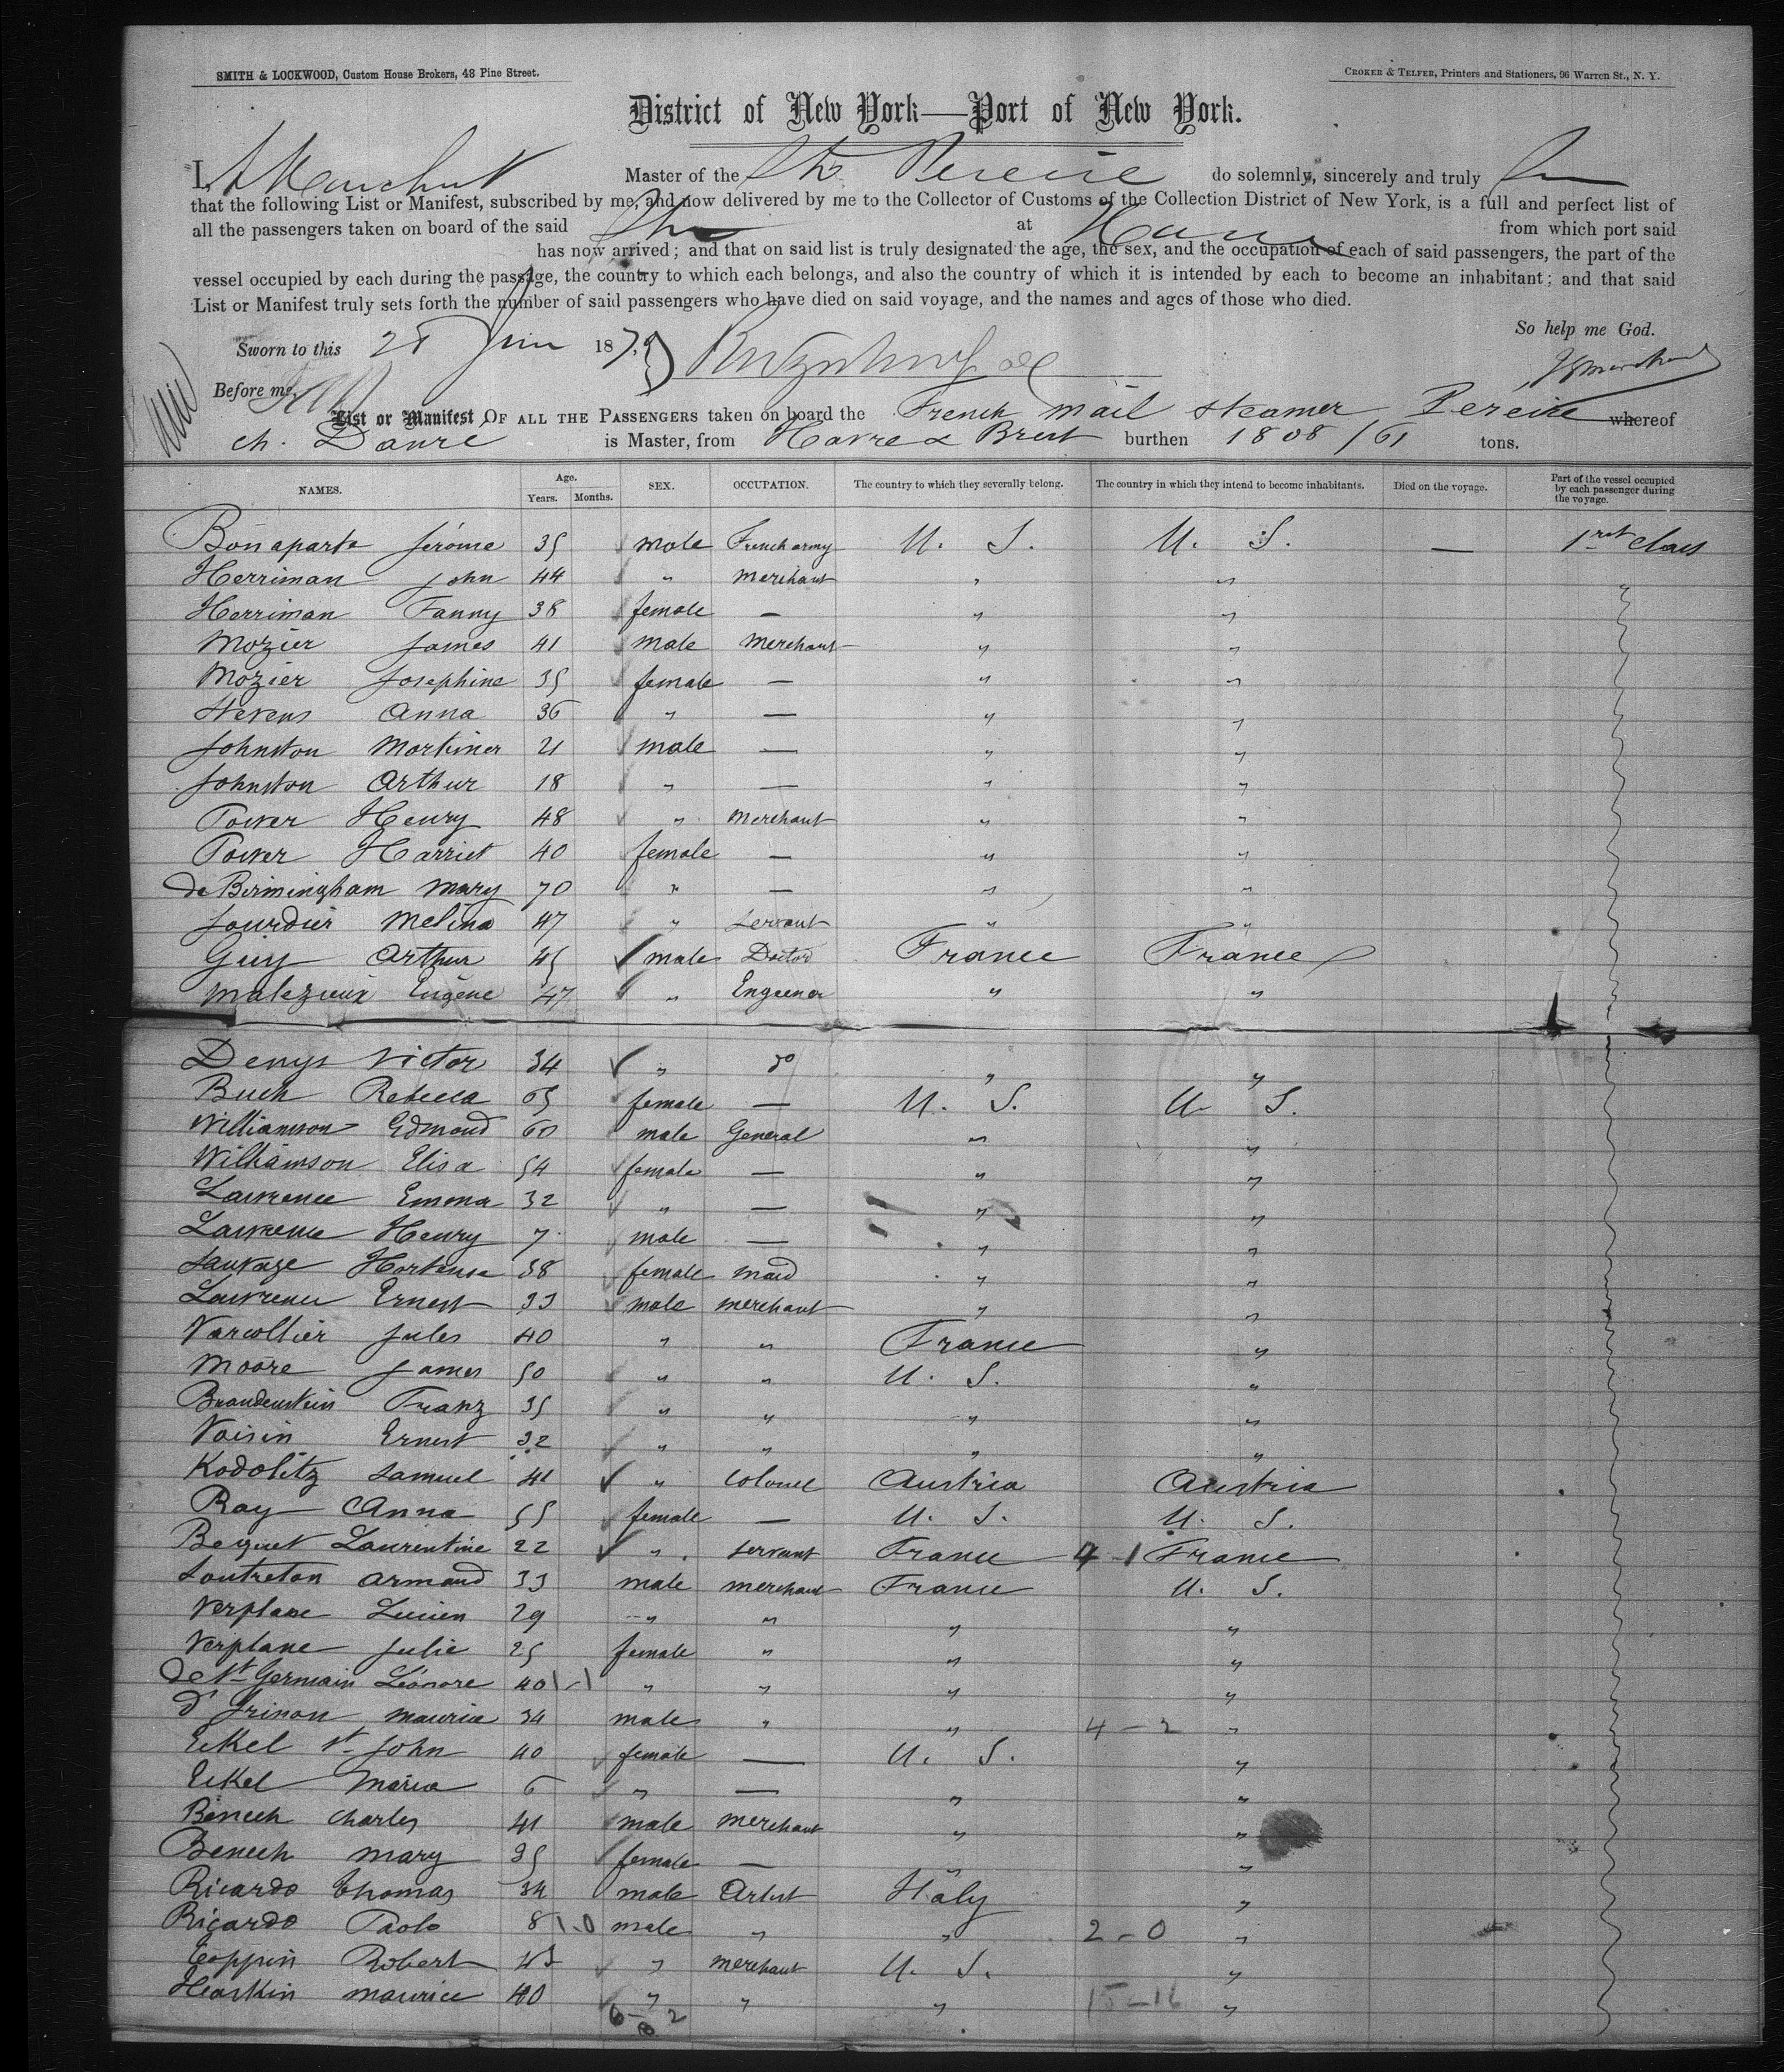 SMITH & LOCKWOOD, Custom House Brokers, 48 Pine Street.
CROKER & TELFER, Printers and Stationers, 96 Warren St., N. Y.
District of New York—Port of New York.
I, Master of the Str Pereire do solemnly, sincerely and truly
that the following List or Manifest, subscribed by me, and now delivered by me to the Collector of Customs of the Collection District of New York, is a full and perfect list of
all the passengers taken on board of the said Str at Havre from which port said
has now arrived; and that on said list is truly designated the age, the sex, and the occupation of each of said passengers, the part of the
vessel occupied by each during the passage, the country to which each belongs, and also the country of which it is intended by each to become an inhabitant; and that said
List or Manifest truly sets forth the number of said passengers who have died on said voyage, and the names and ages of those who died.
So help me God.
Sworn to this 187
Before me,
List or Manifest OF ALL THE PASSENGERS taken on board the French mail steamer Pereire whereof
ch. Danre is Master, from Havre & Brest burthen 1808/61 tons.
NAMES. Age. Years. Months. SEX. OCCUPATION. The country to which they severally belong. The country in which they intend to become inhabitants. Died on the voyage. Part of the vessel occupied by each passenger during the voyage.
Bonaparte Jérôme 35 male French army U. S. U. S. — 1rst class
Herriman John 44 " merchant " " "
Herriman Fanny 38 female — " "
Mozier James 41 male merchant " "
Mozier Josephine 35 female — " "
Stevens Anna 36 " — " "
Johnston Mortimer 21 male — " "
Johnston Arthur 18 " — " "
Power Henry 48 " merchant " "
Power Harriet 40 female — " "
de Birmingham Mary 70 " — " "
Jourdier Melina 47 " servant " "
Guy Arthur 45 male Doctor France France
Malezieux Eugène 47 " Engeener " "
Denys Victor 34 " do " "
Buch Rebecca 65 female — U. S. U. S.
Williamson Edmond 60 male General " "
Williamson Elisa 54 female — " "
Lawrence Emma 32 " — " "
Lawrence Henry 7 male — " "
Sauvage Hortense 38 female maid " "
Lawrence Ernest 33 male merchant " "
Varcollier Jules 40 " " France "
Moore James 50 " " U. S. "
Brandenstein Franz 35 " " " "
Voisin Ernest 32 " " " "
Kodolitz Samuel 41 " colonel Austria Austria
Ray Anna 55 female — U. S. U. S.
Bequet Laurentine 22 " servant France 4-1 France
Loutreton Armand 33 male merchant France U. S.
Verplane Lucien 29 " " " "
Verplane Julie 25 female " " "
de St Germain Léonore 40 1-1 " " " "
d' Maurice 34 male " " 4-2 "
Eckel St John 40 female — U. S. "
Eckel Maria 6 " — " "
Benech Charles 41 male merchant " "
Benech Mary 35 female — " "
Ricardo Thomas 34 male Artist Italy "
Ricardo Paolo 8 1-0 male " " 2-0 "
Coppin Robert 43 " merchant U. S. "
Harkin Maurice 40 " " " 15-16 "
6-2
8